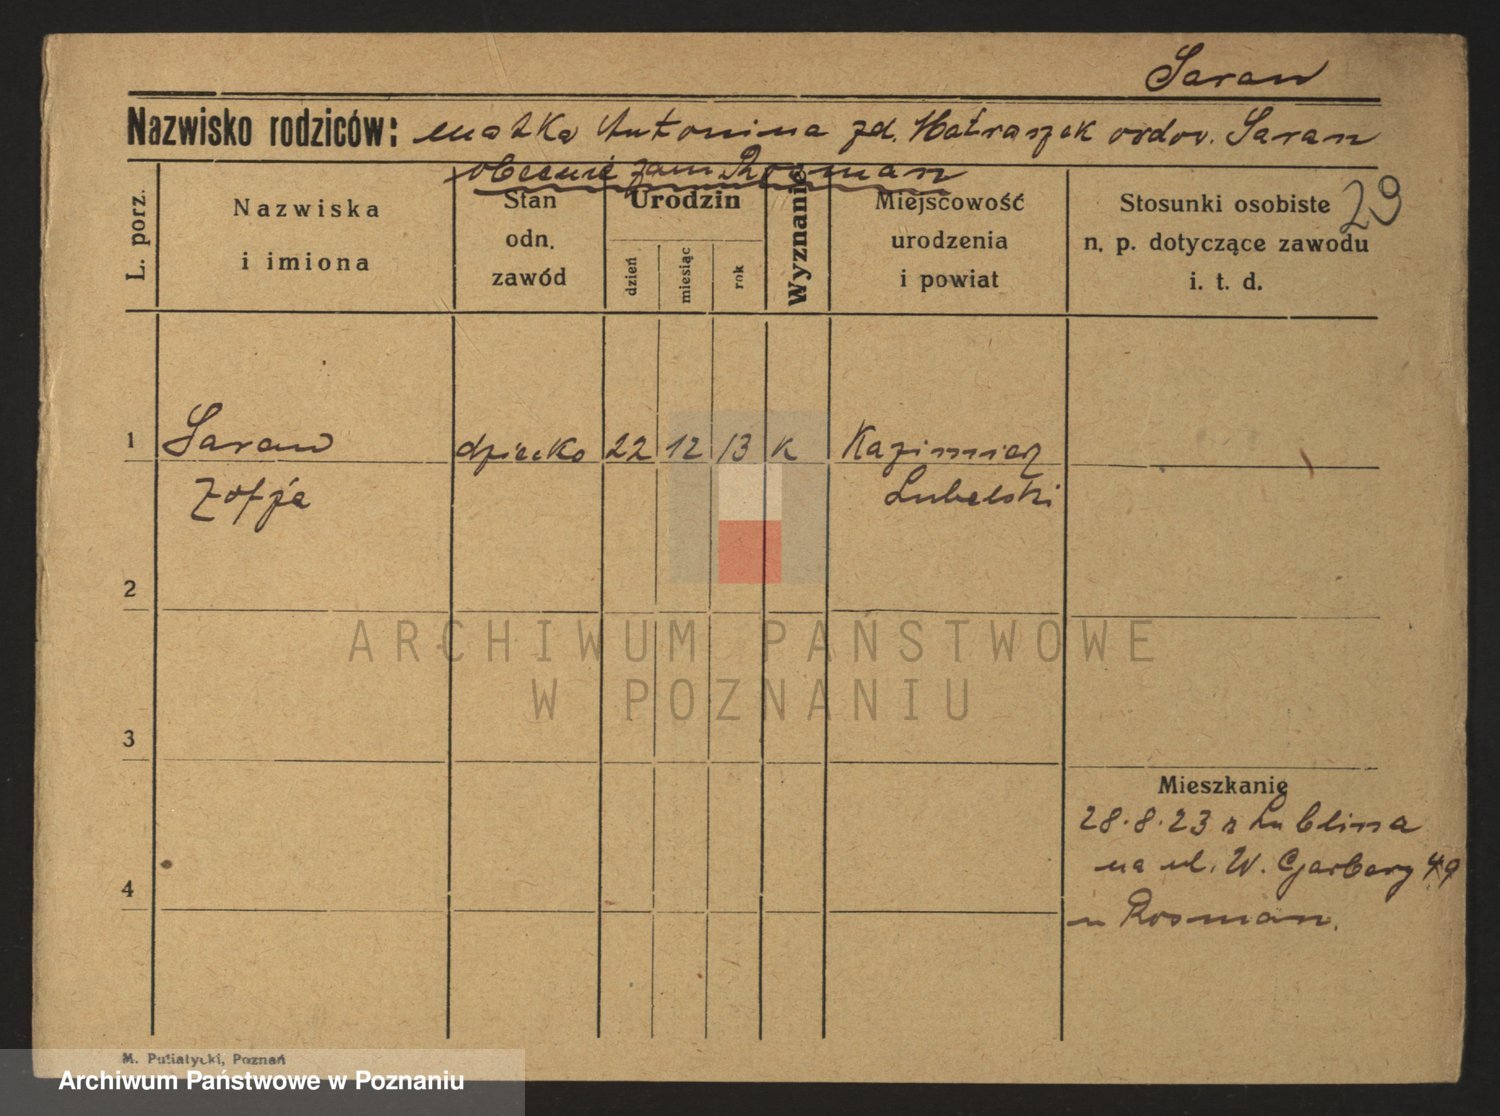 Saran
Nazwisko rodziców: matka Antonina zd. Matraszek owdow. Saran
obecnie zam. Rosman
29
L. porz.
Nazwiska
i imiona
Stan
odn.
zawód
Urodzin
dzień
miesiąc
rok
Wyznanie
Miejscowość
urodzenia
i powiat
Stosunki osobiste
n. p. dotyczące zawodu
i. t. d.
1 Saran dziecko 22 12 13 k Kazimierz
Zofja Lubelski
2
3
4
Mieszkanie
28.8.23 z Lublina
na ul. W. Garbary 49
u Rosman.
ARCHIWUM PAŃSTWOWE
W POZNANIU
M. Putiatycki, Poznań
Archiwum Państwowe w Poznaniu